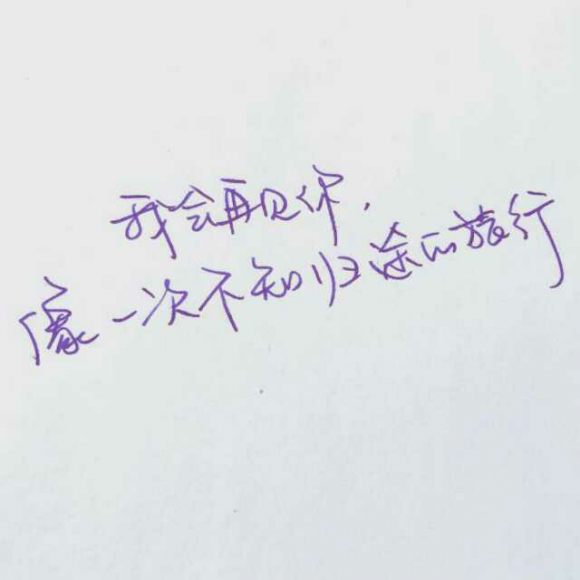 我会再见你.
像一次不知归途的旅行